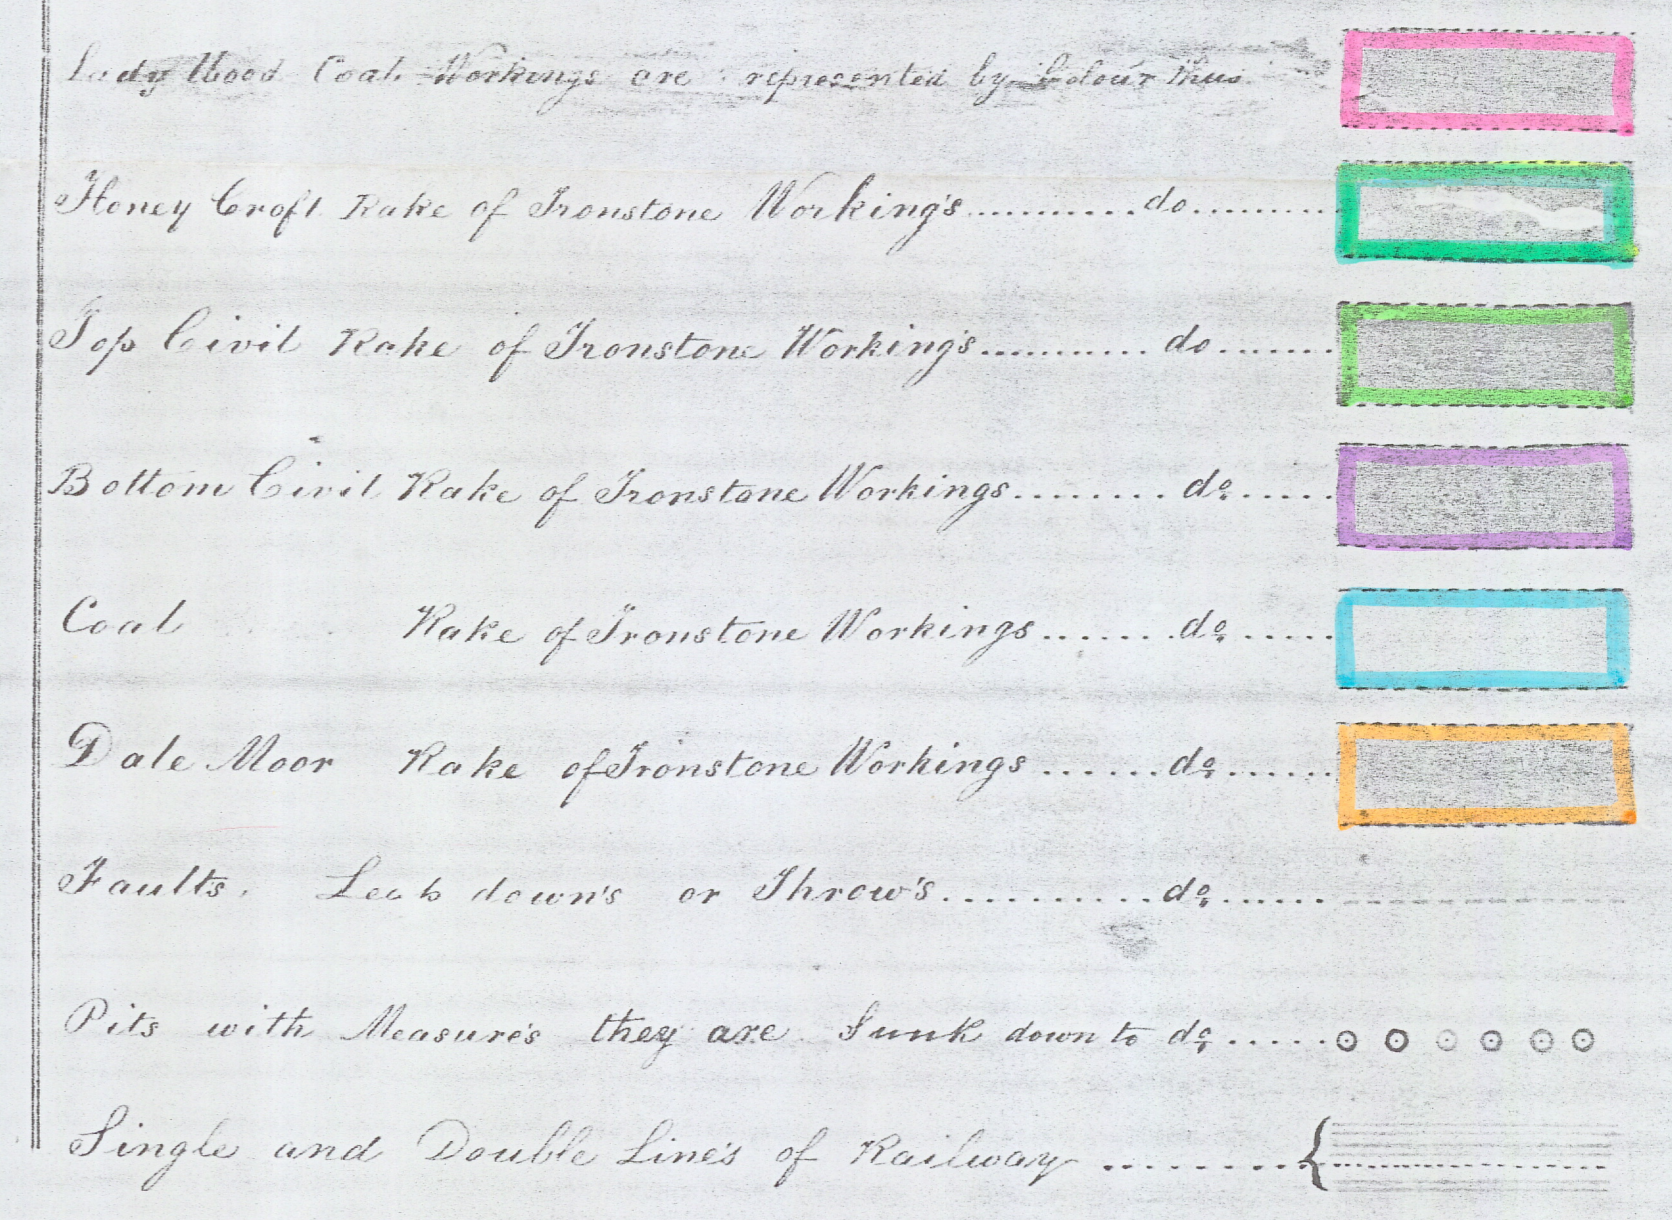 Lady Wood Coal Workings are represented by Colour thus
Honey Croft Rake of Ironstone Working's..........do........
Top Civil Rake of Ironstone Working's...........do.......
Bottom Civil Rake of Ironstone Workings........do.....
Coal Rake of Ironstone Workings.......do.....
Dale Moor Rake of Ironstone Workings......do......
Faults. down's or Throw's..........do......
Pits with Measure's they are Sunk down to do.....
Single and Double Line's of Railway ........